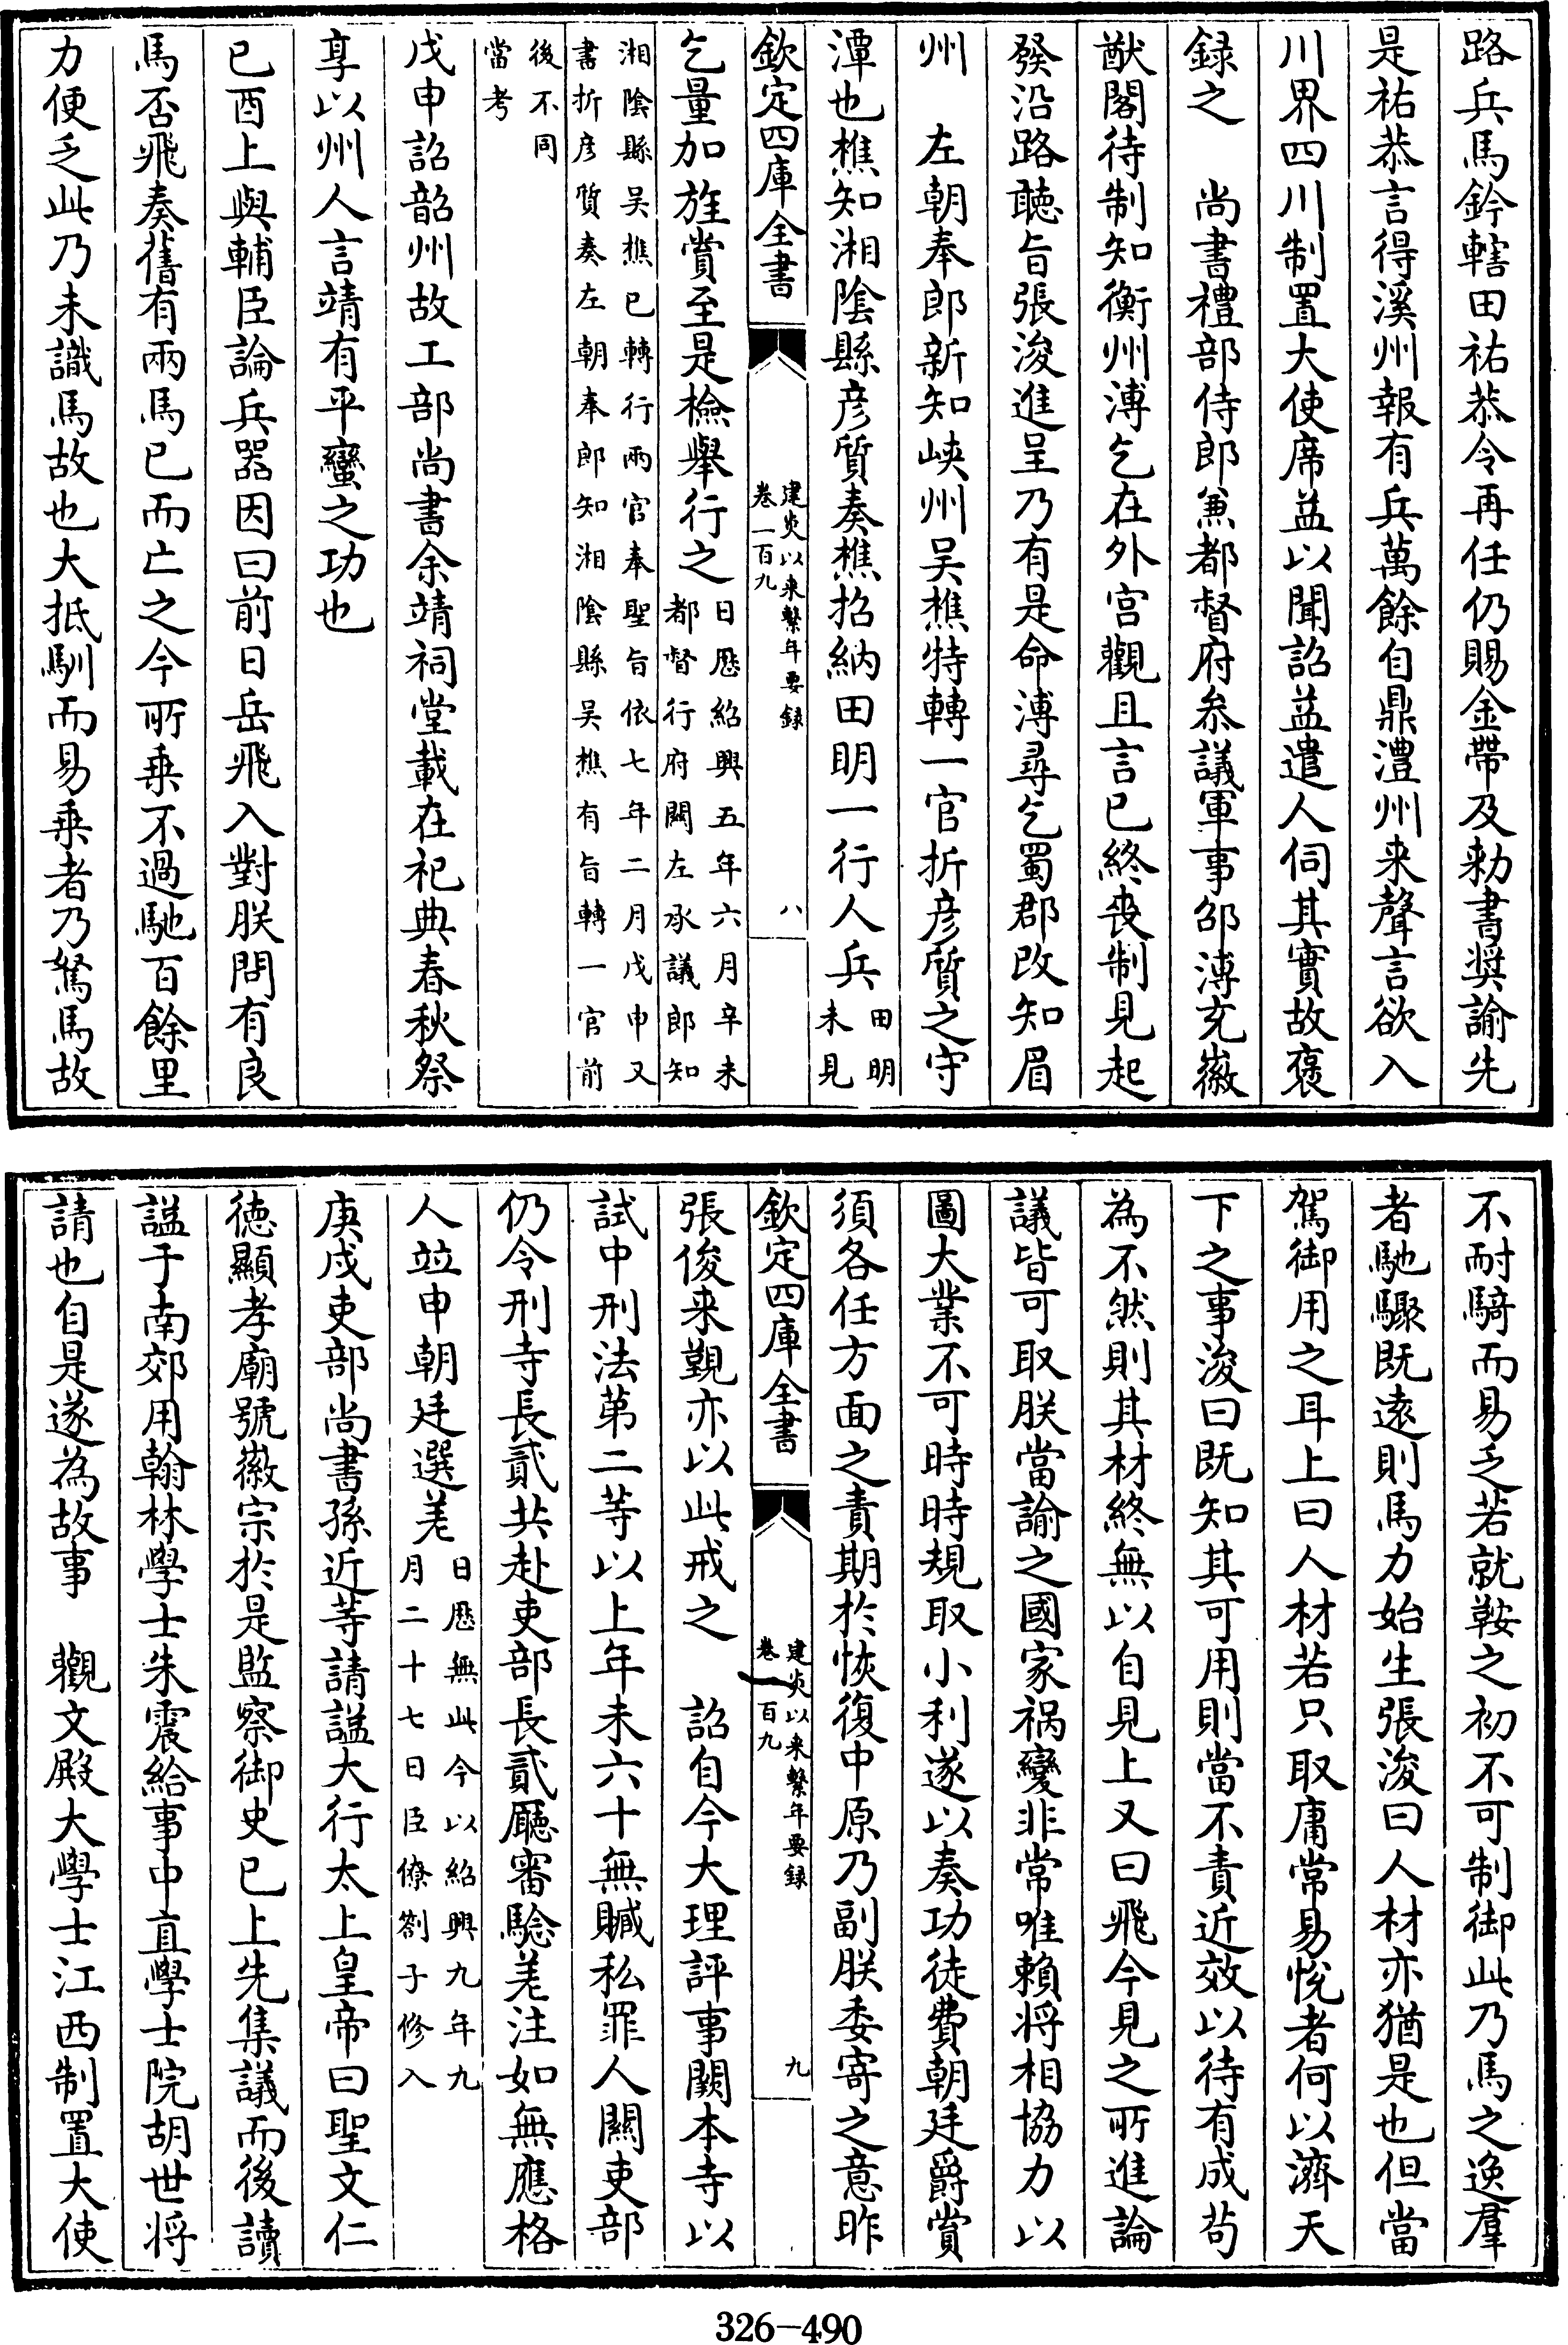 路兵馬鈐轄田祐恭令再任仍賜金帶及勅書奬諭先
是祐恭言得溪州報有兵萬餘自鼎澧州来聲言欲入
川界四川制置大使席益以聞詔益遣人伺其實故褒
録之　尚書禮部侍郎兼都督府叅議軍事邵溥充徽
猷閣待制知衡州溥乞在外宫觀且言已終喪制見起
發沿路聽旨張浚進呈乃有是命溥尋乞蜀郡改知眉
州　左朝奉郎新知峽州吴樵特轉一官折彦質之守
潭也樵知湘陰縣彦質奏樵招納田明一行人兵田明
未見
欽定四庫全書
建炎以来繫年要録
卷一百九
八
乞量加旌賞至是檢舉行之日厯紹興五年六月辛未
都督行府關左承議郎知
湘陰縣吴樵已轉行兩官奉聖旨依七年二月戊申又
書折彦質奏左朝奉郎知湘陰縣吴樵有旨轉一官前
後不同
當考
戊申詔韶州故工部尚書余靖祠堂載在祀典春秋祭
享以州人言靖有平蠻之功也
已酉上與輔臣論兵器因曰前日岳飛入對朕問有良
馬否飛奏舊有兩馬已而亡之今所乗不過馳百餘里
力便乏此乃未識馬故也大抵馴而易乗者乃駑馬故
不耐騎而易乏若就鞍之初不可制御此乃馬之逸羣
者馳驟既逺則馬力始生張浚曰人材亦猶是也但當
駕御用之耳上曰人材若只取庸常易悅者何以濟天
下之事浚曰既知其可用則當不責近效以待有成茍
為不然則其材終無以自見上又曰飛今見之所進論
議皆可取朕當諭之國家禍變非常唯賴将相協力以
圖大業不可時時規取小利遂以奏功徒費朝廷爵賞
須各任方面之責期於恢復中原乃副朕委寄之意昨
欽定四庫全書
建炎以来繫年要録
卷一百九
九
張俊来覲亦以此戒之　詔自今大理評事闕本寺以
試中刑法第二等以上年未六十無贓私罪人關吏部
仍令刑寺長貳共赴吏部長貳廳審驗差注如無應格
人竝申朝廷選差日厯無此今以紹興九年九
月二十七日臣僚劄子修入
庚戌吏部尚書孫近等請諡大行太上皇帝曰聖文仁
徳顯孝廟號徽宗於是監察御史已上先集議而後讀
諡于南郊用翰林學士朱震給事中直學士院胡世将
請也自是遂為故事　觀文殿大學士江西制置大使
326-490